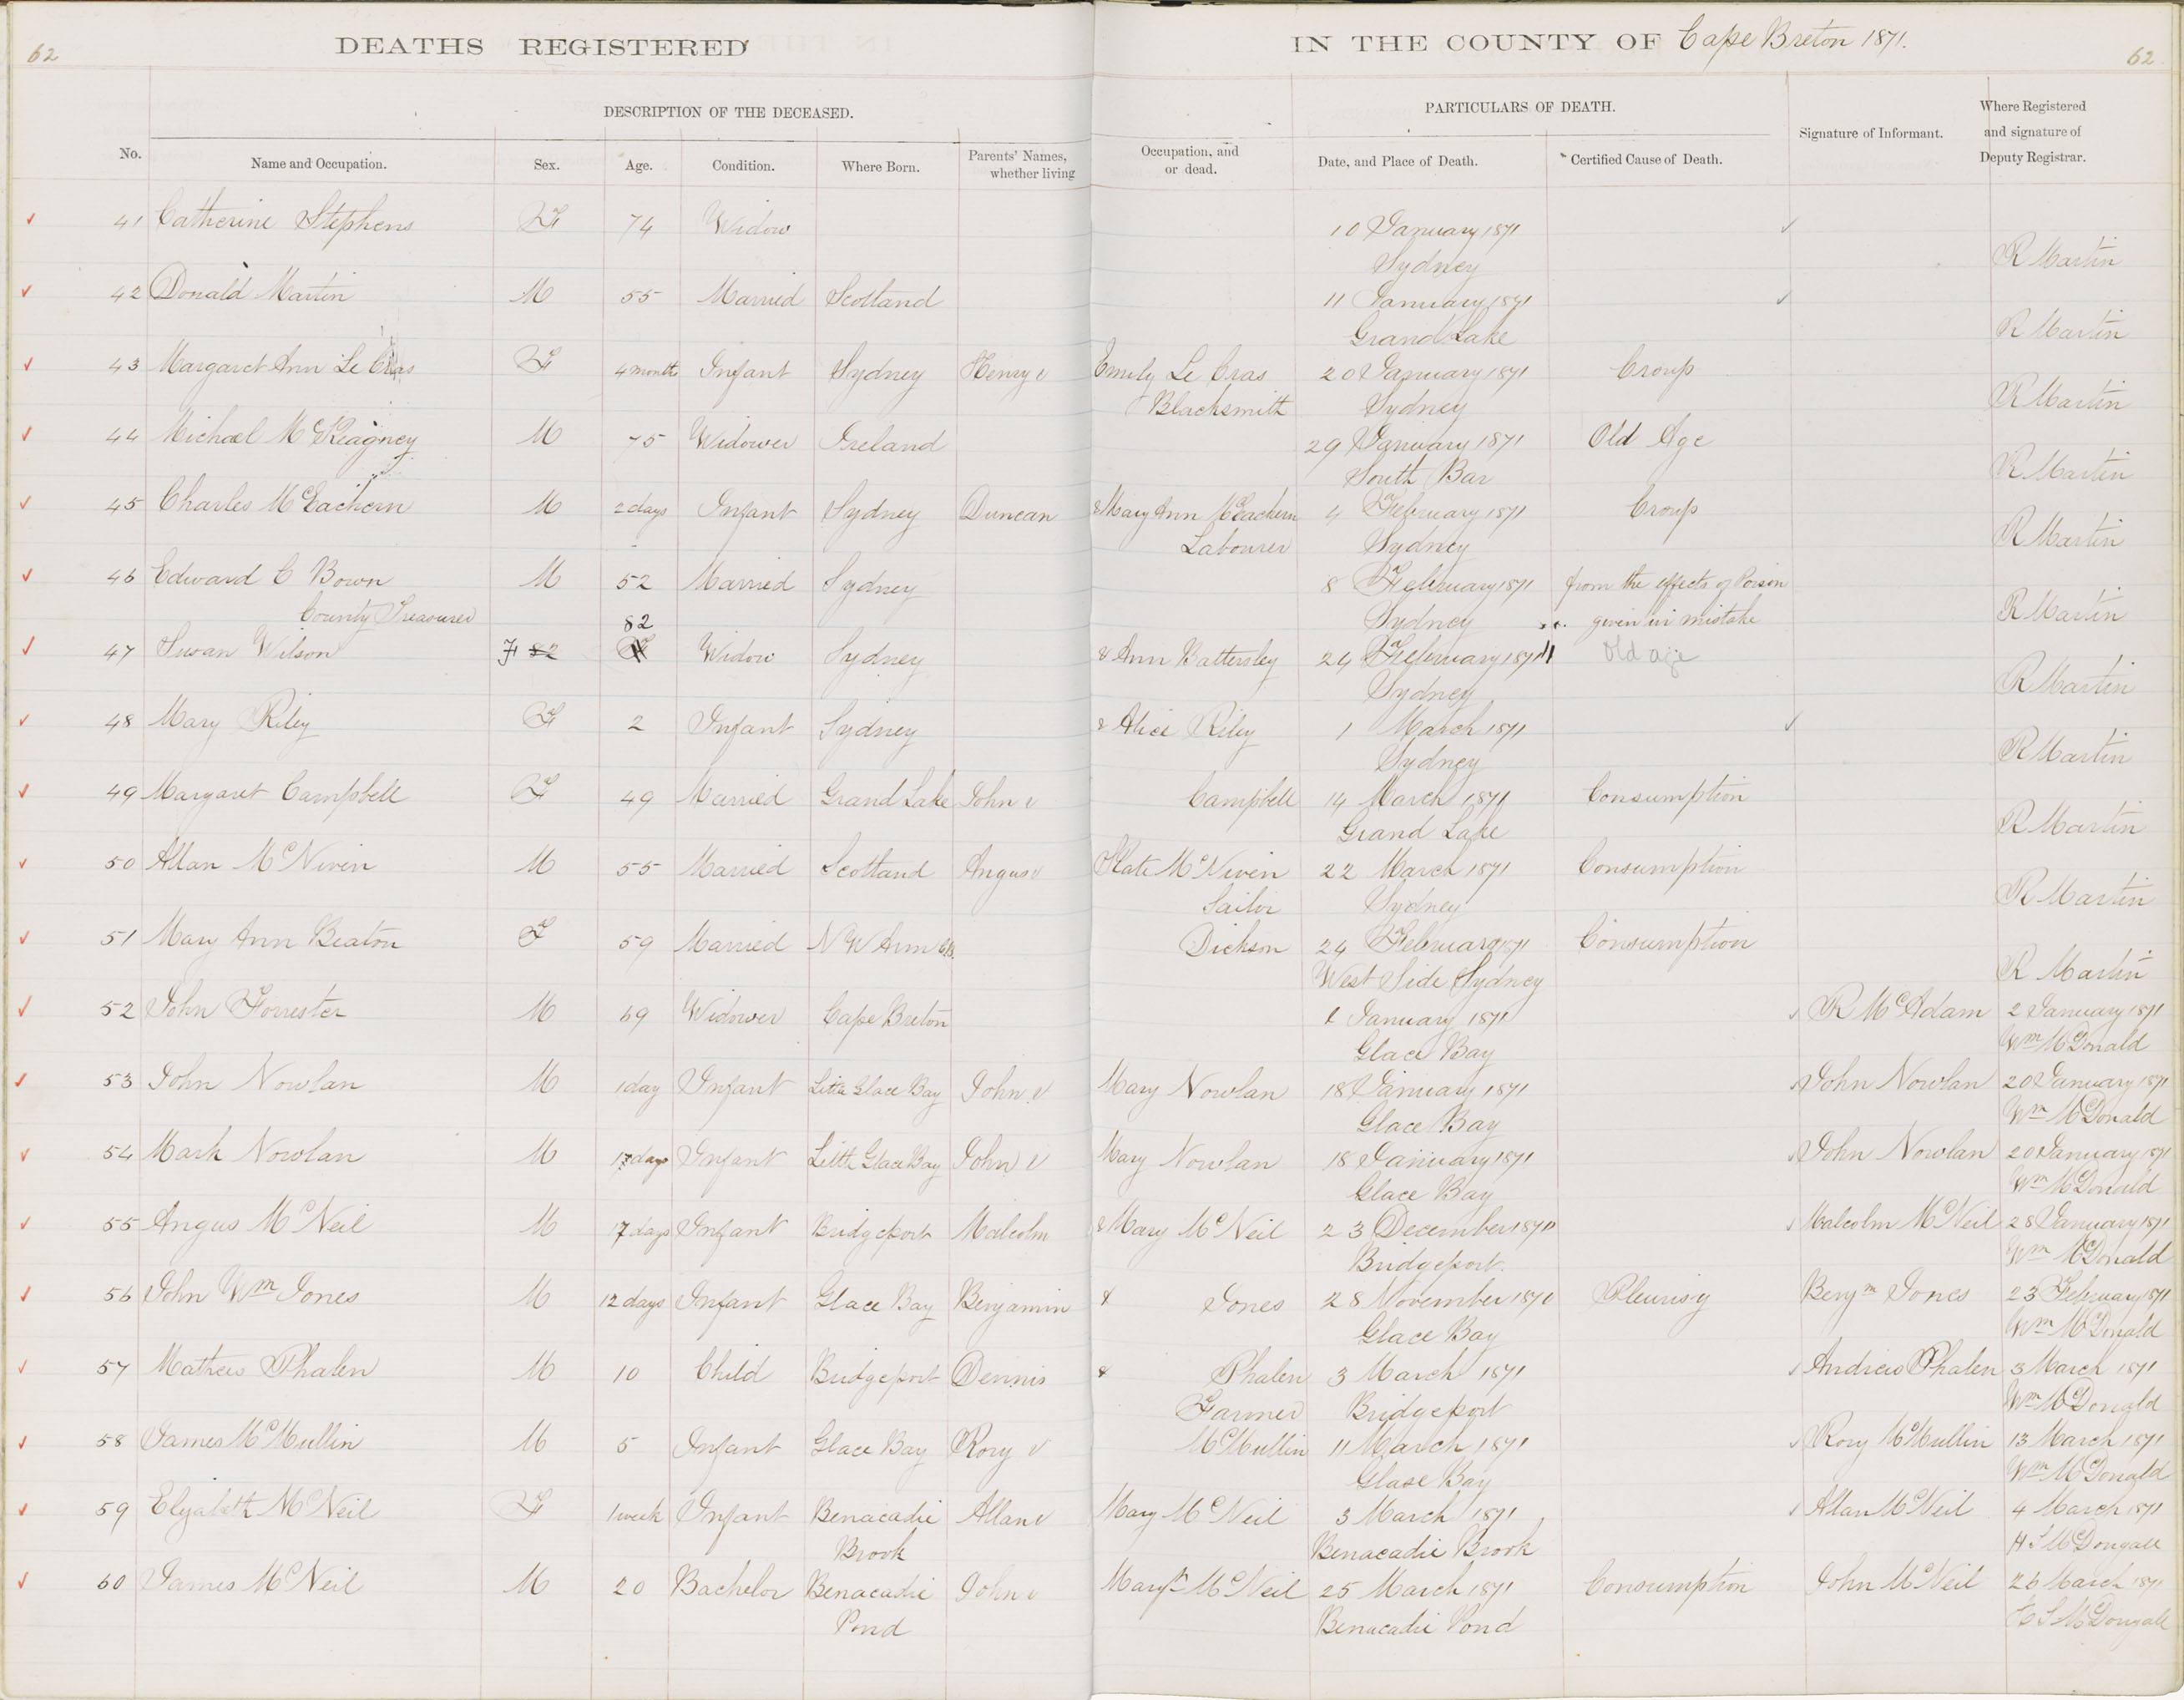 62
DEATHS REGISTERED
IN THE COUNTY OF Cape Breton 1871.
62
DESCRIPTION OF THE DECEASED.
PARTICULARS OF DEATH.
Signature of Informant.
Where Registered and signature of Deputy Registrar.
No. Name and Occupation. Sex. Age. Condition. Where Born. Parents' Names, whether living Occupation, and or dead. Date, and Place of Death. Certified Cause of Death.
41 Catherine Stephens F 74 Widow 10 January 1871
Sydney R Martin
42 Donald Martin M 55 Married Scotland 11 January 1871
Grand Lake R Martin
43 Margaret Ann Le Cras F 4 months Infant Sydney Henry & Emily Le Cras 20 January 1871 Croup
Blacksmith Sydney R Martin
44 Michael McKeagney M 75 Widower Ireland 29 January 1871 Old Age
South Bar R Martin
45 Charles McEachern M 2 days Infant Sydney Duncan & Mary Ann McEachern 4 February 1871 Croup
Labourer Sydney R Martin
46 Edward C Bown M 52 Married Sydney 8 February 1871 from the effects of Poison
County Treasurer Sydney given in mistake R Martin
82
47 Susan Wilson F 82 F Widow Sydney & Ann Battersley 24 February 1871 Old age
Sydney R Martin
48 Mary Riley F 2 Infant Sydney & Alice Riley 1 March 1871
Sydney R Martin
49 Margaret Campbell F 49 Married Grand Lake John & Campbell 14 March 1871 Consumption
Grand Lake R Martin
50 Allan McNiven M 55 Married Scotland Angus & Kate McNiven 22 March 1871 Consumption
Sailor Sydney R Martin
51 Mary Ann Beaton F 59 Married N W Arm CB. Dickson 24 February 1871 Consumption
West Side Sydney R Martin
52 John Forrester M 69 Widower Cape Breton 1 January 1871 R McAdam 2 January 1871
Glace Bay Wm McDonald
53 John Nowlan M 1 day Infant Little Glace Bay John & Mary Nowlan 18 January 1871 John Nowlan 20 January 1871
Glace Bay Wm McDonald
54 Mark Nowlan M days Infant Little Glace Bay John & Mary Nowlan 18 January 1871 John Nowlan 20 January 1871
Glace Bay Wm McDonald
55 Angus McNeil M 17 days Infant Bridgeport Malcolm & Mary McNeil 23 December 1870 Malcolm McNeil 28 January 1871
Bridgeport. Wm McDonald
56 John Wm Jones M 12 days Infant Glace Bay Benjamin & Jones 28 November 1870 Pleurisy Benjm Jones 23 February 1871
Glace Bay Wm McDonald
57 Mathew Phalen M 10 Child Bridgeport Dennis & Phalen 3 March 1871 Andrew Phalen 3 March 1871
Farmer Bridgeport Wm McDonald
58 James McMullin M 5 Infant Glace Bay Rory & McMullin 11 March 1871 Rory McMullin 13 March 1871
Glase Bay Wm McDonald
59 Elizabeth McNeil F 1 week Infant Benacadie Allan & Mary McNeil 3 March 1871 Allan McNeil 4 March 1871
Brook Benacadie Brook H S McDougall
60 James McNeil M 20 Bachelor Benacadie John & Margt McNeil 25 March 1871 Consumption John McNeil 26 March 1871
Pond Benacadie Pond H S McDougall